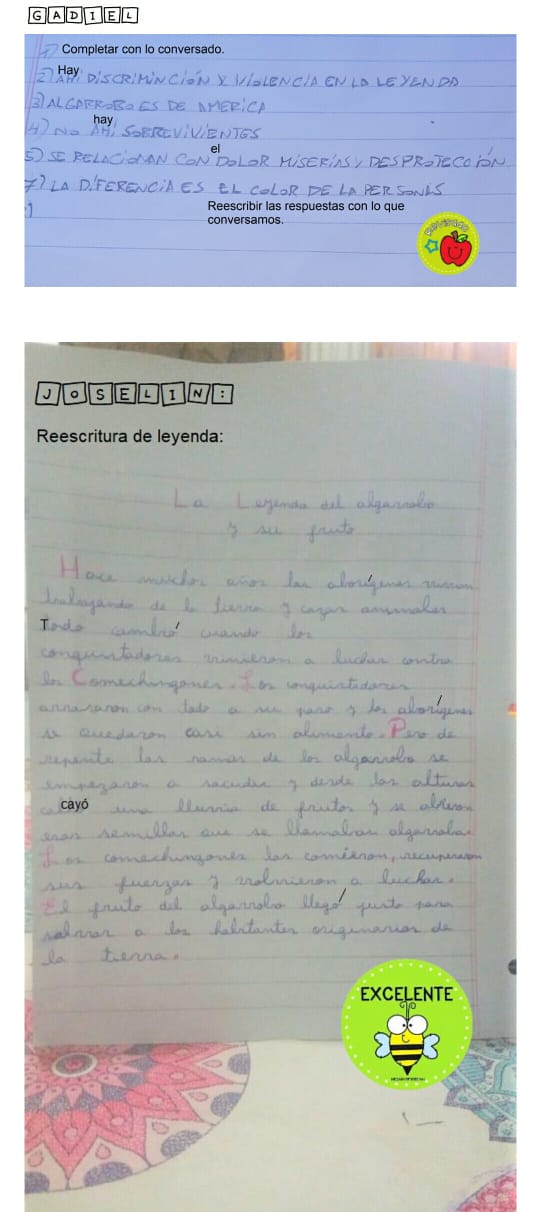 GADIEL
1) Completar con lo conversado.
Hay
2) AHI DISCRIMINCIÓN Y VIOLENCIA EN LA LEYENDA
3) ALGARROBO ES DE AMERICA
hay
4) NO AHI SOBREVIVIENTES
el
5) SE RELACIONAN CON DOLOR MISERIAS Y DESPROTECCIÓN
7) LA DIFERENCIA ES EL COLOR DE LA PERSONAS
Reescribir las respuestas con lo que
conversamos.
REVISADO
JOSELIN:
Reescritura de leyenda:
La Leyenda del algarrobo
y su fruto
Hace muchos años los aborígenes vivian
trabajando de la tierra y cazar animales
Todo cambió cuando los
conquistadores vinieron a luchar contra
los Comechingones. Los conquistadores
arrasaron con todo a su paso y los aborígenes
se quedaron casi sin alimento. Pero de
repente las ramas de los algarrobo se
empezaron a sacudir y desde las alturas
cayó una lluvia de frutos y se abrieron
esas semillas que se llamaban algarroba.
Los comechingones las comieron, recuperaron
sus fuerzas y volvieron a luchar.
El fruto del algarrobo llegó justo para
salvar a los habitantes originarios de
la tierra.
EXCELENTE